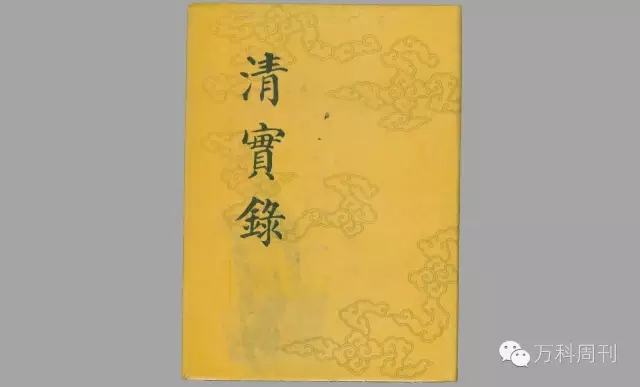 清實錄
万科周刊